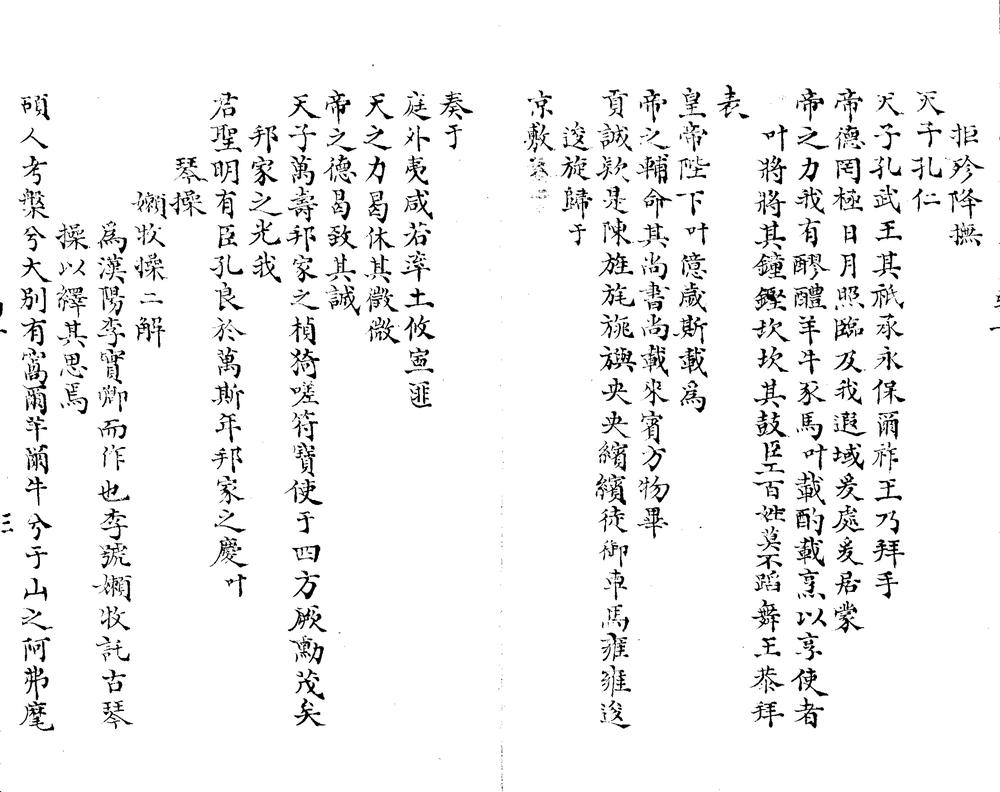 拒珍降撫
天子孔仁
天子孔武王其祇承永保爾祚王乃拜手
帝德罔極日月照臨及我遐域爰處爰居蒙
帝之力我有醪醴羊牛豕馬叶載酌載烹以享使者
叶將將其鐘鏗坎坎其鼓臣工百姓莫不蹈舞王恭拜
表
皇帝陛下叶億歲斯載爲
帝之輔命其尚書尚載來賓方物畢
貢誠欵是陳旌旄旖旟央央繽繽徒御車馬雍雍逡
逡旋歸于
京敷
奏于
庭外夷咸若率土攸宣匪
天之力曷休其微微
帝之德曷致其誠
天子萬壽邦家之楨猗嗟符寶使于四方厥勳茂矣
邦家之光我
君聖明有臣孔良於萬斯年邦家之慶叶
琴操
嬾牧操二解
爲漢陽李寶卿而作也李號嬾牧託古琴
操以繹其思焉
碩人考槃兮大別有窩爾羊爾牛兮于山之阿弗麾
三